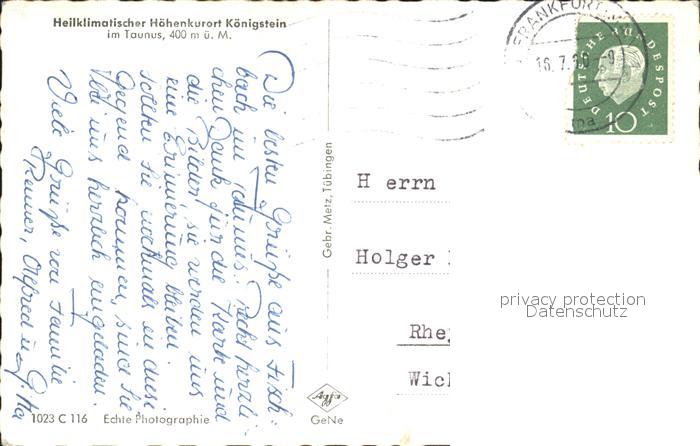 Heilklimatischer Höhenkurort Königstein
im Taunus, 400 m ü. M.
Die besten Grüße aus Fisch-
bach im Taunus. Recht herzli-
chen Dank für die Karte und
die Bilder, sie werden uns
eine Erinnerung bleiben.
sollten Sie nochmals in diese
Gegend kommen, sind Sie
von uns herzlich eingeladen.
Viele Grüße von Familie
Alfred u.
1023 C 116 Echte Photographie
Gebr. Metz, Tübingen
Agfa
GeNe
FRANKFURT
16.7.60-9
DEUTSCHE BUNDESPOST
10
Herrn
Holger
Rhe
Wic
privacy protection
Datenschutz